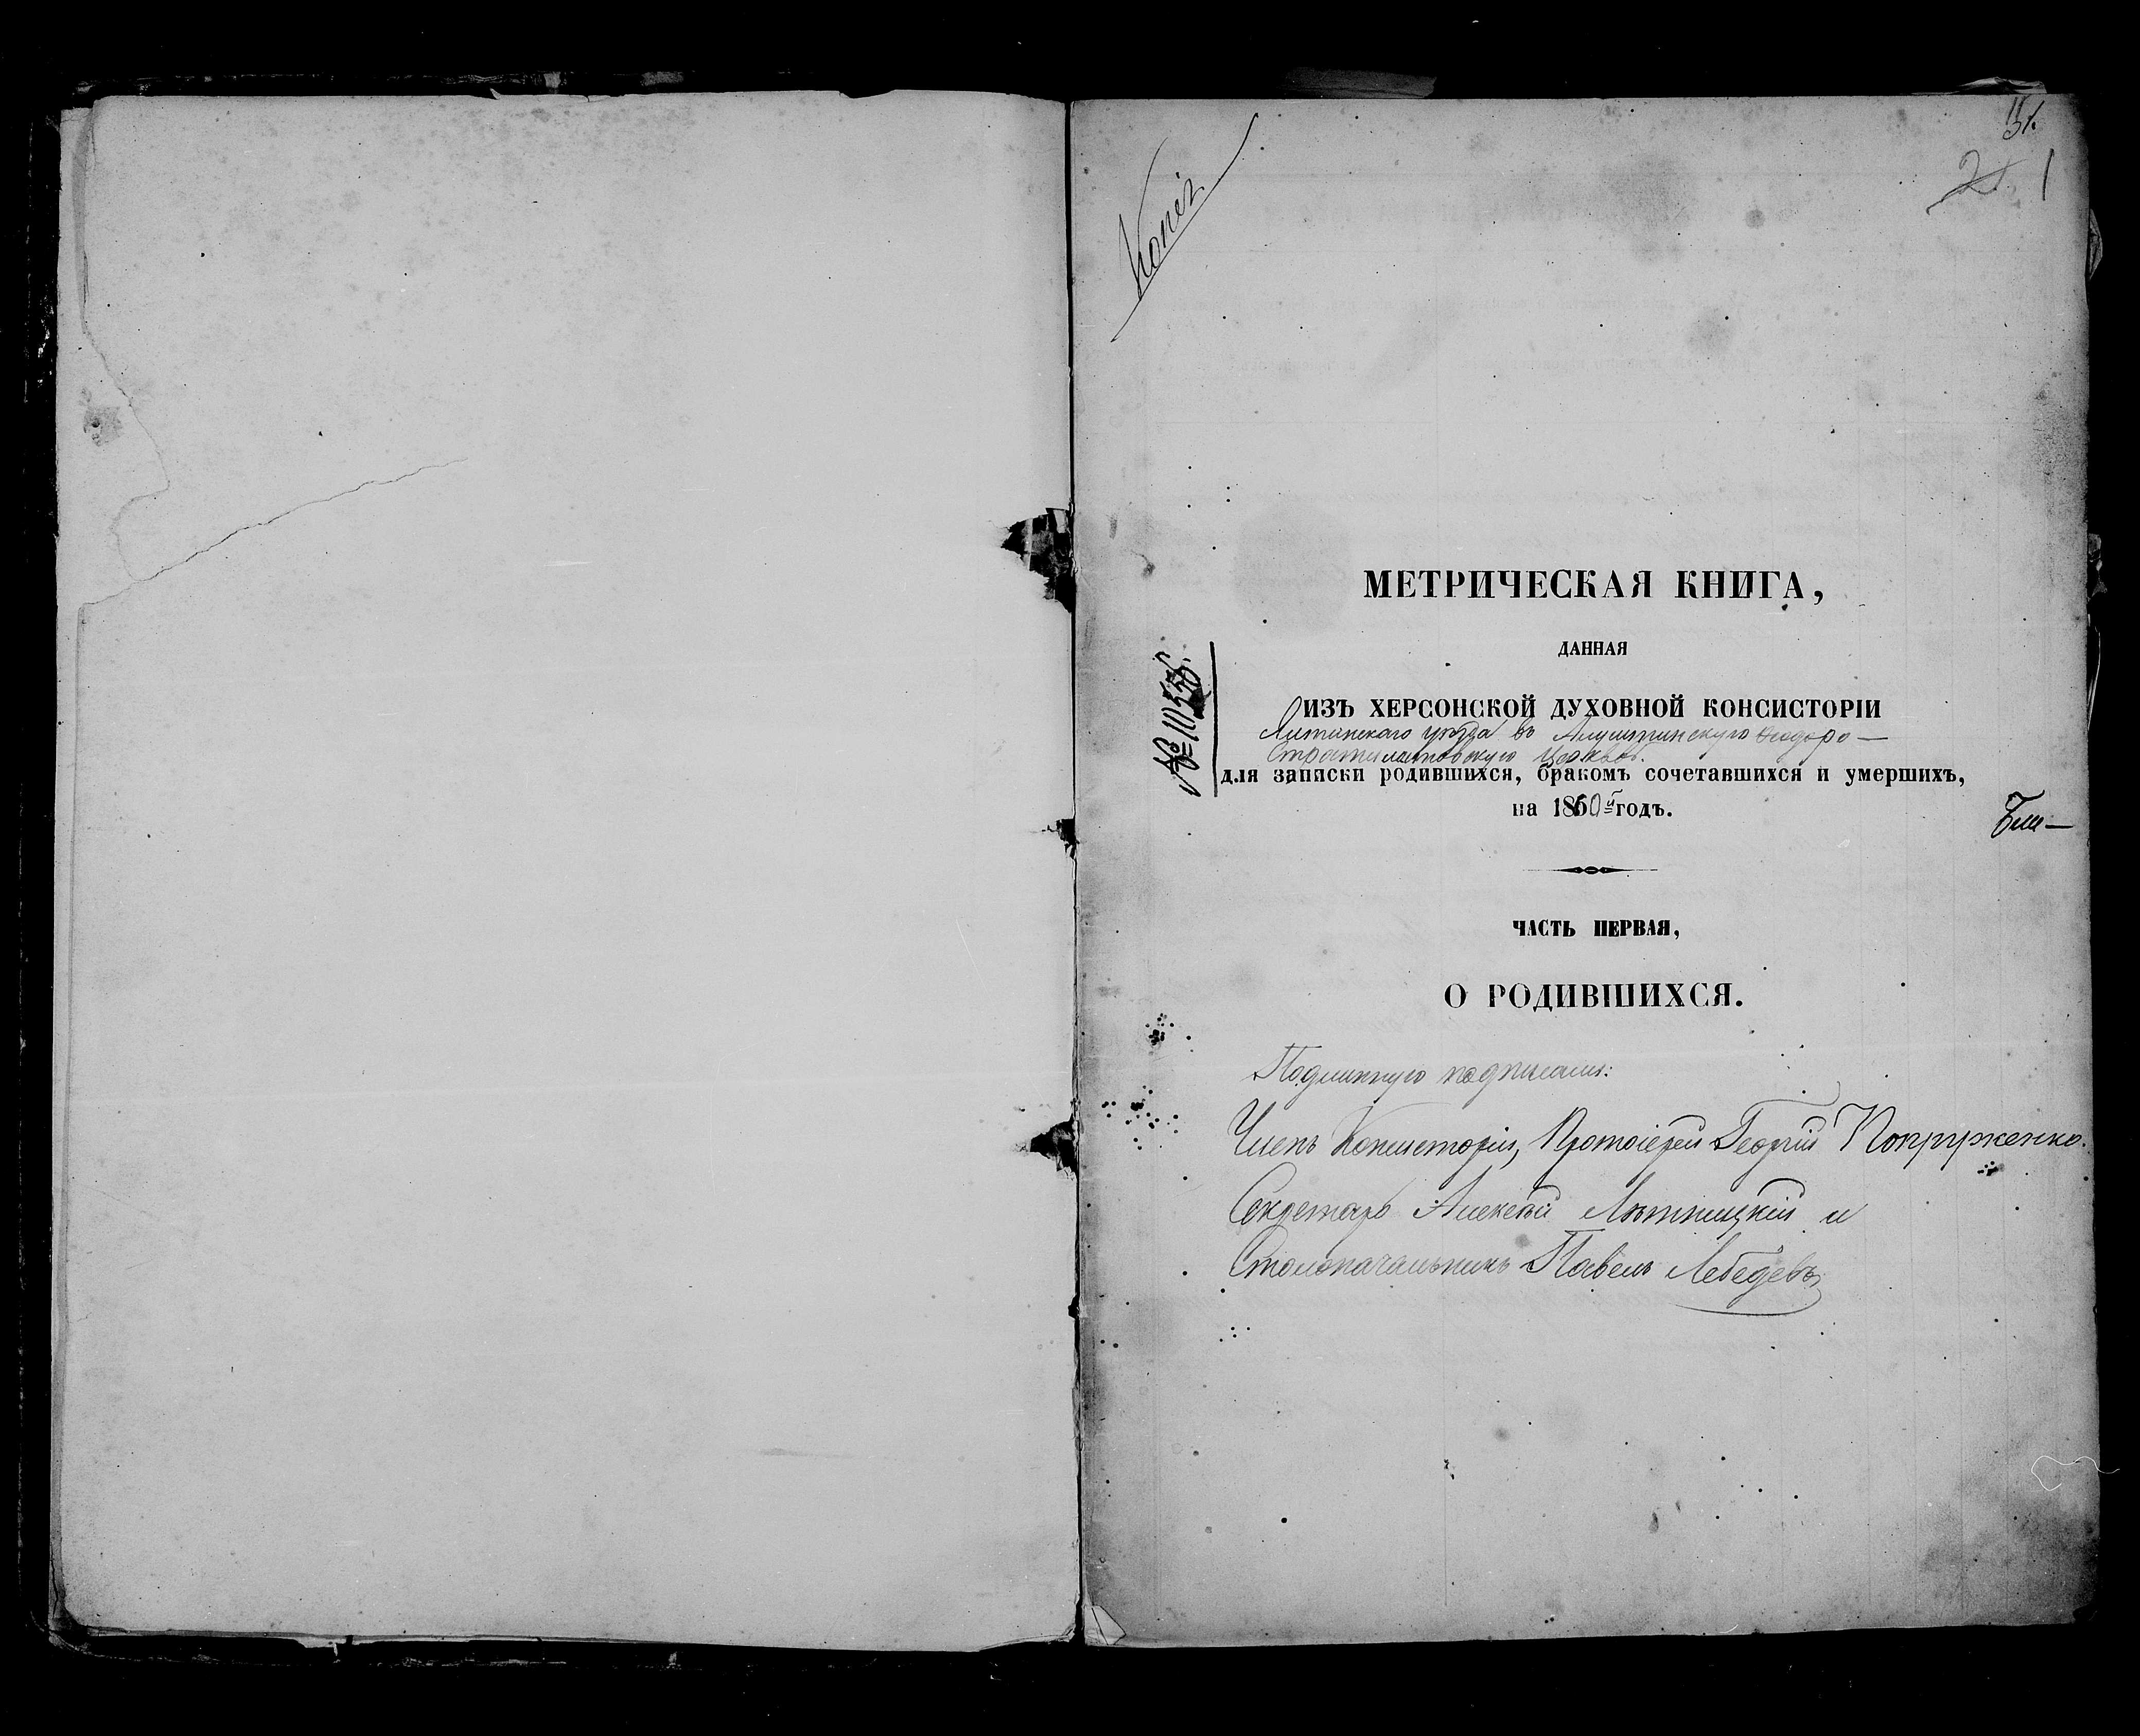 Копія
1
МЕТРИЧЕСКАЯ КНИГА,
ДАННАЯ
ИЗЪ ХЕРСОНСКОЙ ДУХОВНОЙ КОНСИСТОРІИ
Ялтинскаго уѣзда въ Алуштинскую Ѳеодоро—
Стратилатовскую церковь.
для записки родившихся, бракомъ сочетавшихся и умершихъ,
на 1860й годъ.
ЧАСТЬ ПЕРВАЯ,
О РОДИВШИХСЯ.
Подлинную подписали:
Членъ Консисторіи, Протоіерей Георгій Попруженко.
Секретарь Алексѣй Лѣтницкій и
Столоначальникъ Павелъ Лебедевъ